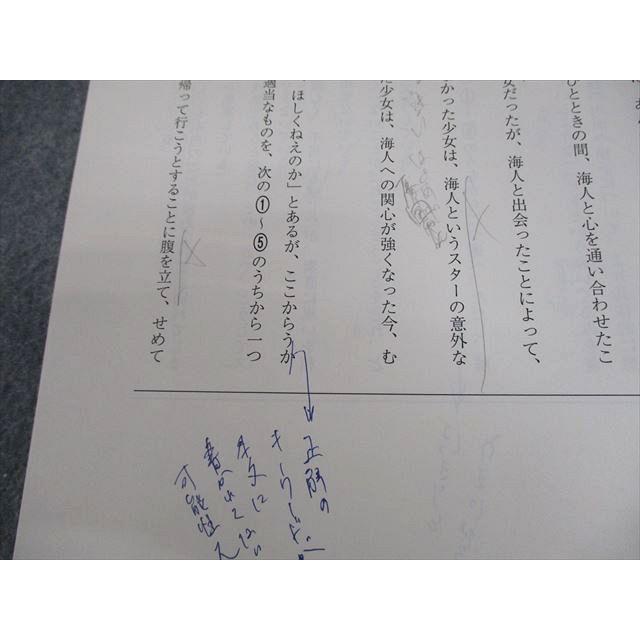 ひとときの間、海人と心を通い合わせたこ
女だったが、海人と出会ったことによって、
かった少女は、海人というスターの意外な
た少女は、海人への関心が強くなった今、む
ほしくねえのか」とあるが、ここからうか
適当なものを、次の①〜⑤のうちから一つ
帰って行こうとすることに腹を立て、せめて
正解の
キーワードが
本文にない
書かれて
可能性大